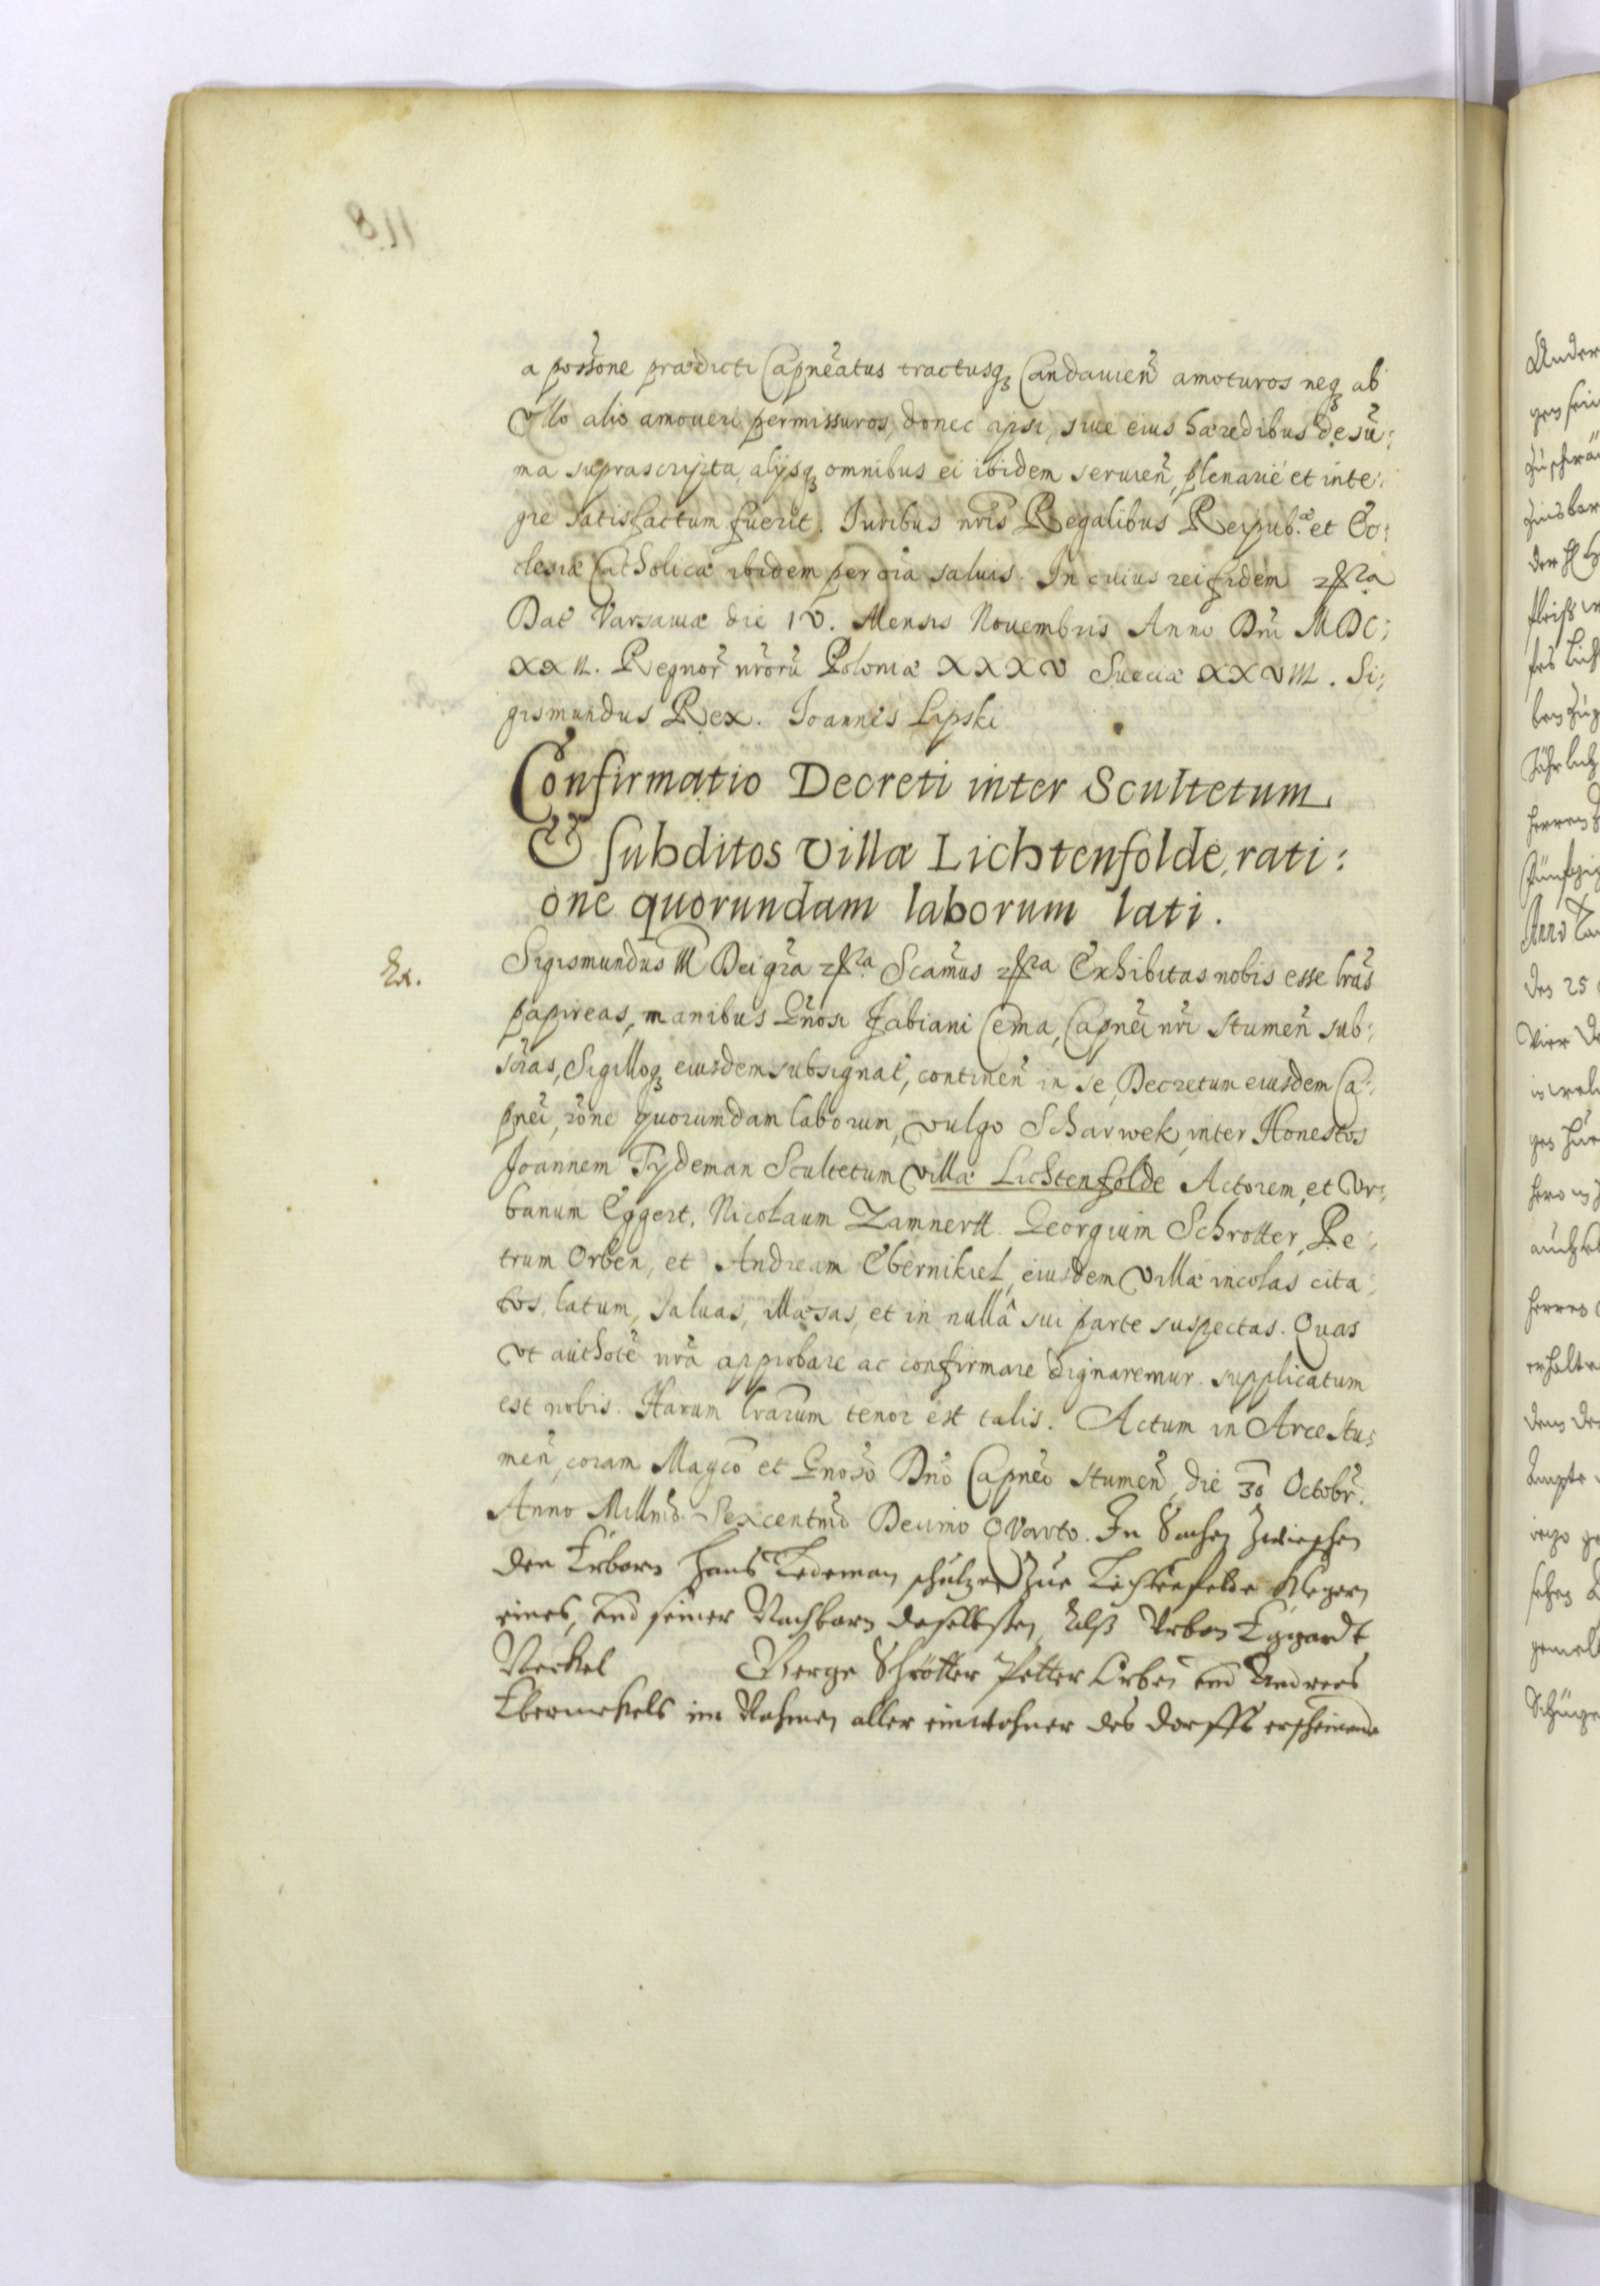 a possõne prædicti Capneatus tractusq́ Candauien̄ amoturos neq́ ab
Vllo alio amoueri permissuros, donec ipsi, siue eius hæredibus de sū:
ma suprascripta, alijsq́ omnibus ei ibidem seruien̄, plenarie et inte:
gre satisfactum fuerit. Iuribus nr̄is Regalibus Reipub.cæ et Ec:
clesiæ Catholicæ ibidem per oīa saluis. In cuius rei fidem
Dat̄ Varsauiæ die IV. Mensis Nouembris Anno Dnī MDC:
XXII. Regnor̄ nr̄orū Poloniæ XXXV Sueciæ XXVIII. Si:
gismundus Rex. Joannes Lipski
Confirmatio Decreti inter Scultetum
Et subditos villæ Lichtenfolde, rati:
one quorundam laborum lati.
Ex.
Sigismundus III Dei gr̄a Scām̄us Exhibitas nobis esse lr̄as
papireas, manibus Gn̄osi Fabiani Cema, Capnei nr̄i Stumen̄ sub:
scr̄as, Sigilloq́ eiusdem subsignat̄, continen̄ in se, Decretum eiusdem Ca:
pnei, rōne quorumdam laborum, vulgo Scharwek, inter Honestos
Joannem Tydeman Scultetum Villæ Lichtenfolde Actorem, et Vr:
banum Eggert, Nicolaum Zamnertt. Georgium Schrotter, Pe:
trum Orben, et Andream Ebernikiel, eiusdem Villæ incolas cita:
tos, latum, saluas, illæsas, et in nullâ sui parte suspectas. Quas
Vt authote nr̄a approbare ac confirmare dignaremur. supplicatum
est nobis. Harum lr̄arum tenor est talis. Actum in Arce Stu:
men̄, coram Magco et Gnoso Dnō Capneo Stumen̄, die 30 Octobr̄.
Anno Millm̄o Sexcentmo Decimo Quarto. In Sachen zwieschen
den Erbarn Hans Tedeman schulzen zue Lichtefelde Klegern
eines, und seiner Nachbarn daselbsten, Alß Urban Eggardt
Neckel George Schrötter Petter Orben und Andrees
Ebernekels im Nahmen aller einwohner des dorffs erscheinende